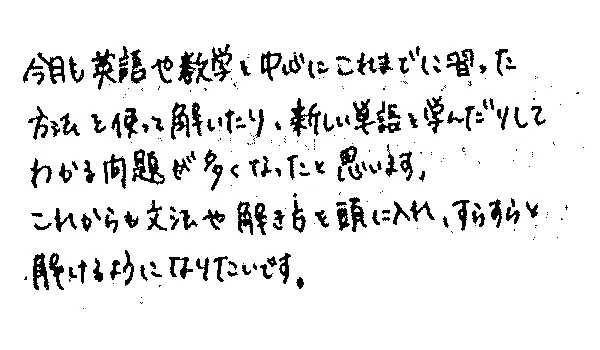 今月も英語や数学を中心にこれまでに習った
方法を使って解いたり、新しい単語を学んだりして
わかる問題が多くなったと思います。
これからも文法や解き方を頭に入れ、すらすらと
解けるようになりたいです。